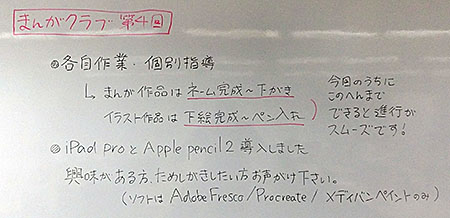 まんがクラブ 第4回
◎各自作業・個別指導
↳ まんが作品は ネーム完成〜下がき
イラスト作品は 下絵完成〜ペン入れ
今回のうちに
このへんまで
できると進行が
スムーズです!
◎iPad proとApple pencil2 導入しました
興味がある方、ためしがきしたい方お声がけ下さい。
(ソフトは AdobeFresco/Procreate/メディバンペイントのみ)